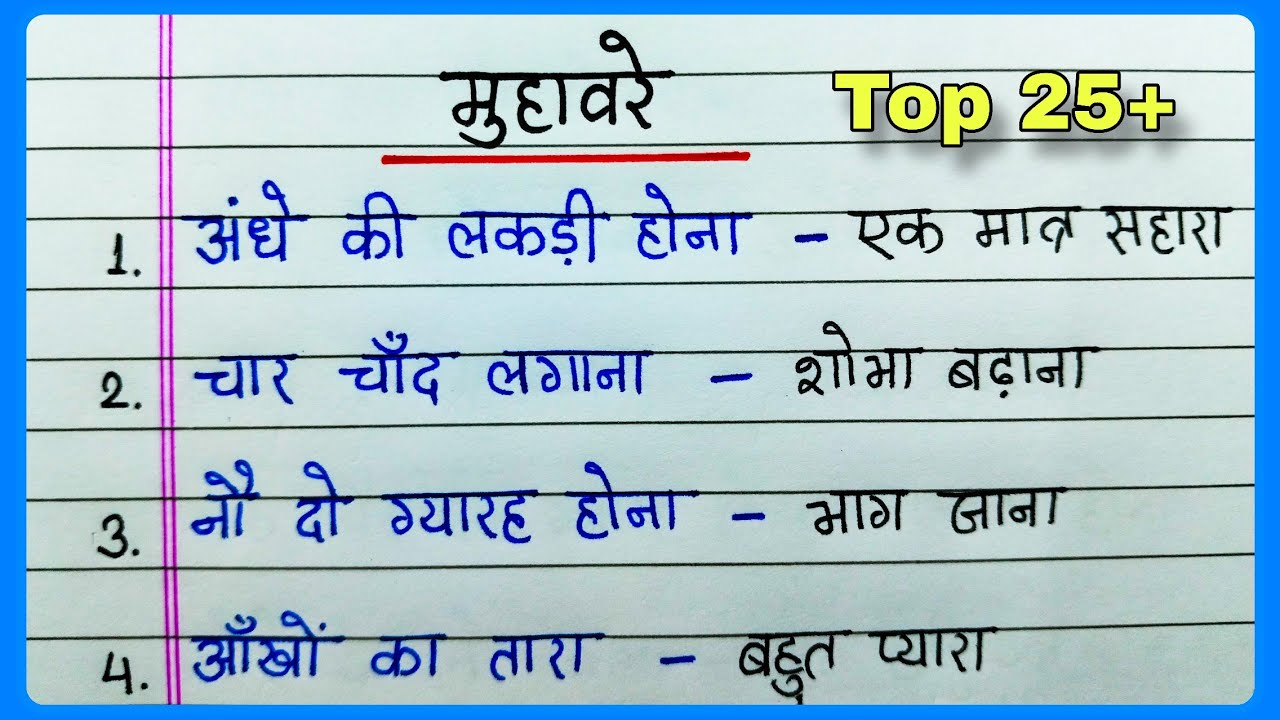 मुहावरे Top 25+
1. अंधे की लकड़ी होना - एक मात्र सहारा
2. चार चाँद लगाना - शोभा बढ़ाना
3. नौ दो ग्यारह होना - भाग जाना
4. आँखों का तारा - बहुत प्यारा